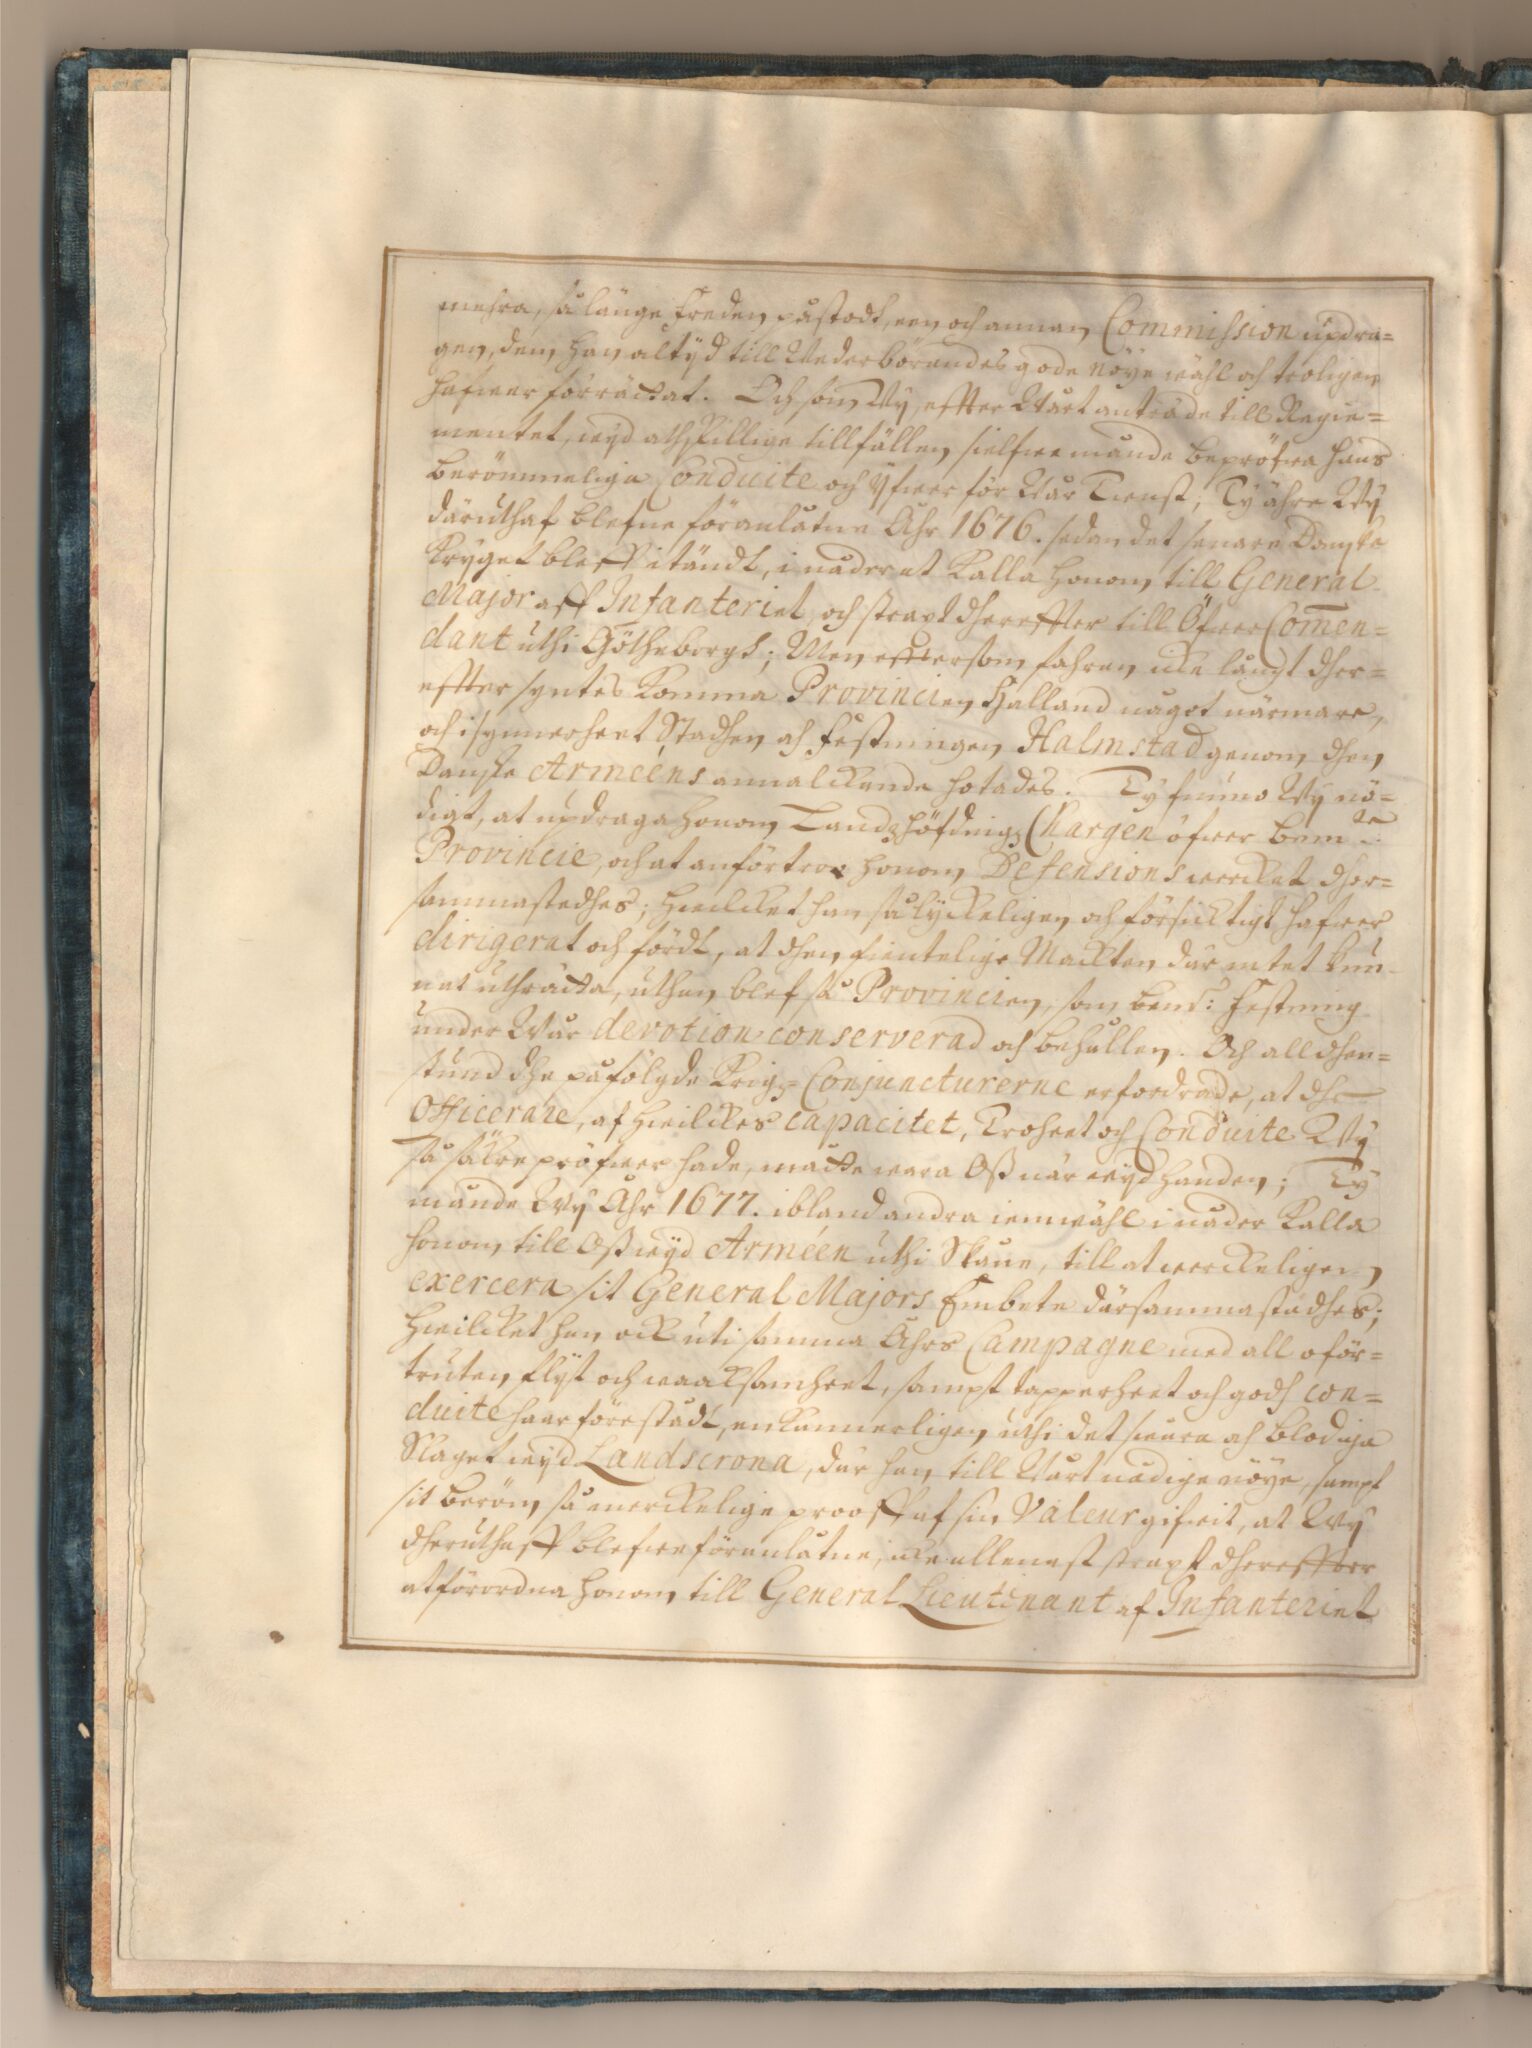 mehra, så länge freden påstodt, een och annan Commission updra=
gen, dem han altijd till Wederbörandes gode nöye wähl och troligen
hafwer förrättat. Och som Wij, effter Wårt anträde till Regie=
mentet, wijd athskillige tillfällen sielfwe munde bepröfwa hans
berömmeliga Conduite och ijfwer för Wår Tienst; Ty ähre Wij
däruthaf blefne föranlåtne Åhr 1676. sedan det senare Danske
Kryget bleff itändt, i nåder at kalla honom till General
Major aff Infanteriet, och straxt dhereffter till Öfwer Comen=
dant uthi Götheborgh; Men effter som fahran icke långt dher=
effter syntes komma Provincien Halland något närmare,
och i synnerheet Stadhen och Festningen Halmstad genom dhen
Danske Arméens annalckande hotades. Ty funno Wij nö=
digt, at updraga honom Landzhöfdingz Chargen öfwer bem:te
Provincie, och at anförtroo honom Defensions wercket dher=
sammastedhes; hwilcket han så lyckeligen och försicktigt hafwer
dirigerat och fördt, at dhen fientelige Machten där intet kun=
nat uthrätta, uthan blef så Provincien, som bem:te Festning
under Wår devotion conserverad och behållen. Och alldhen=
stund dhe påfölgde Krigz=Conjuncturerne erfordrade, at dhe
Officerare, af hwilckes capacitet, Troheet och Conduite Wij
så säkre pröfwer hade, måtte wara Oß när wijd handen; Ty
munde Wij Åhr 1677. ibland andra iemwähl i nåder kalla
honom till Oß wijd Arméen uthi Skåne, till at werckeligen
exercera sit General Majors Embete därsammastädhes;
hwilcket han ock uti samma Åhrs Campagne med all oför=
truten flijt och waaksamheet, sampt tapperheet och godh con=
duite haar förestådt, enkannerligen uthi det swåra och blodiga
Slaget wijd Landscrona, där han till Wårt nådige nöye, sampt
sit beröm så merckelige prooff af sin Valeur gifwit, at Wij
dheruthaff blefwe föranlåtne, icke allenast straxt dhereffter
at förordna honom till General Lieutinant af Infanteriet